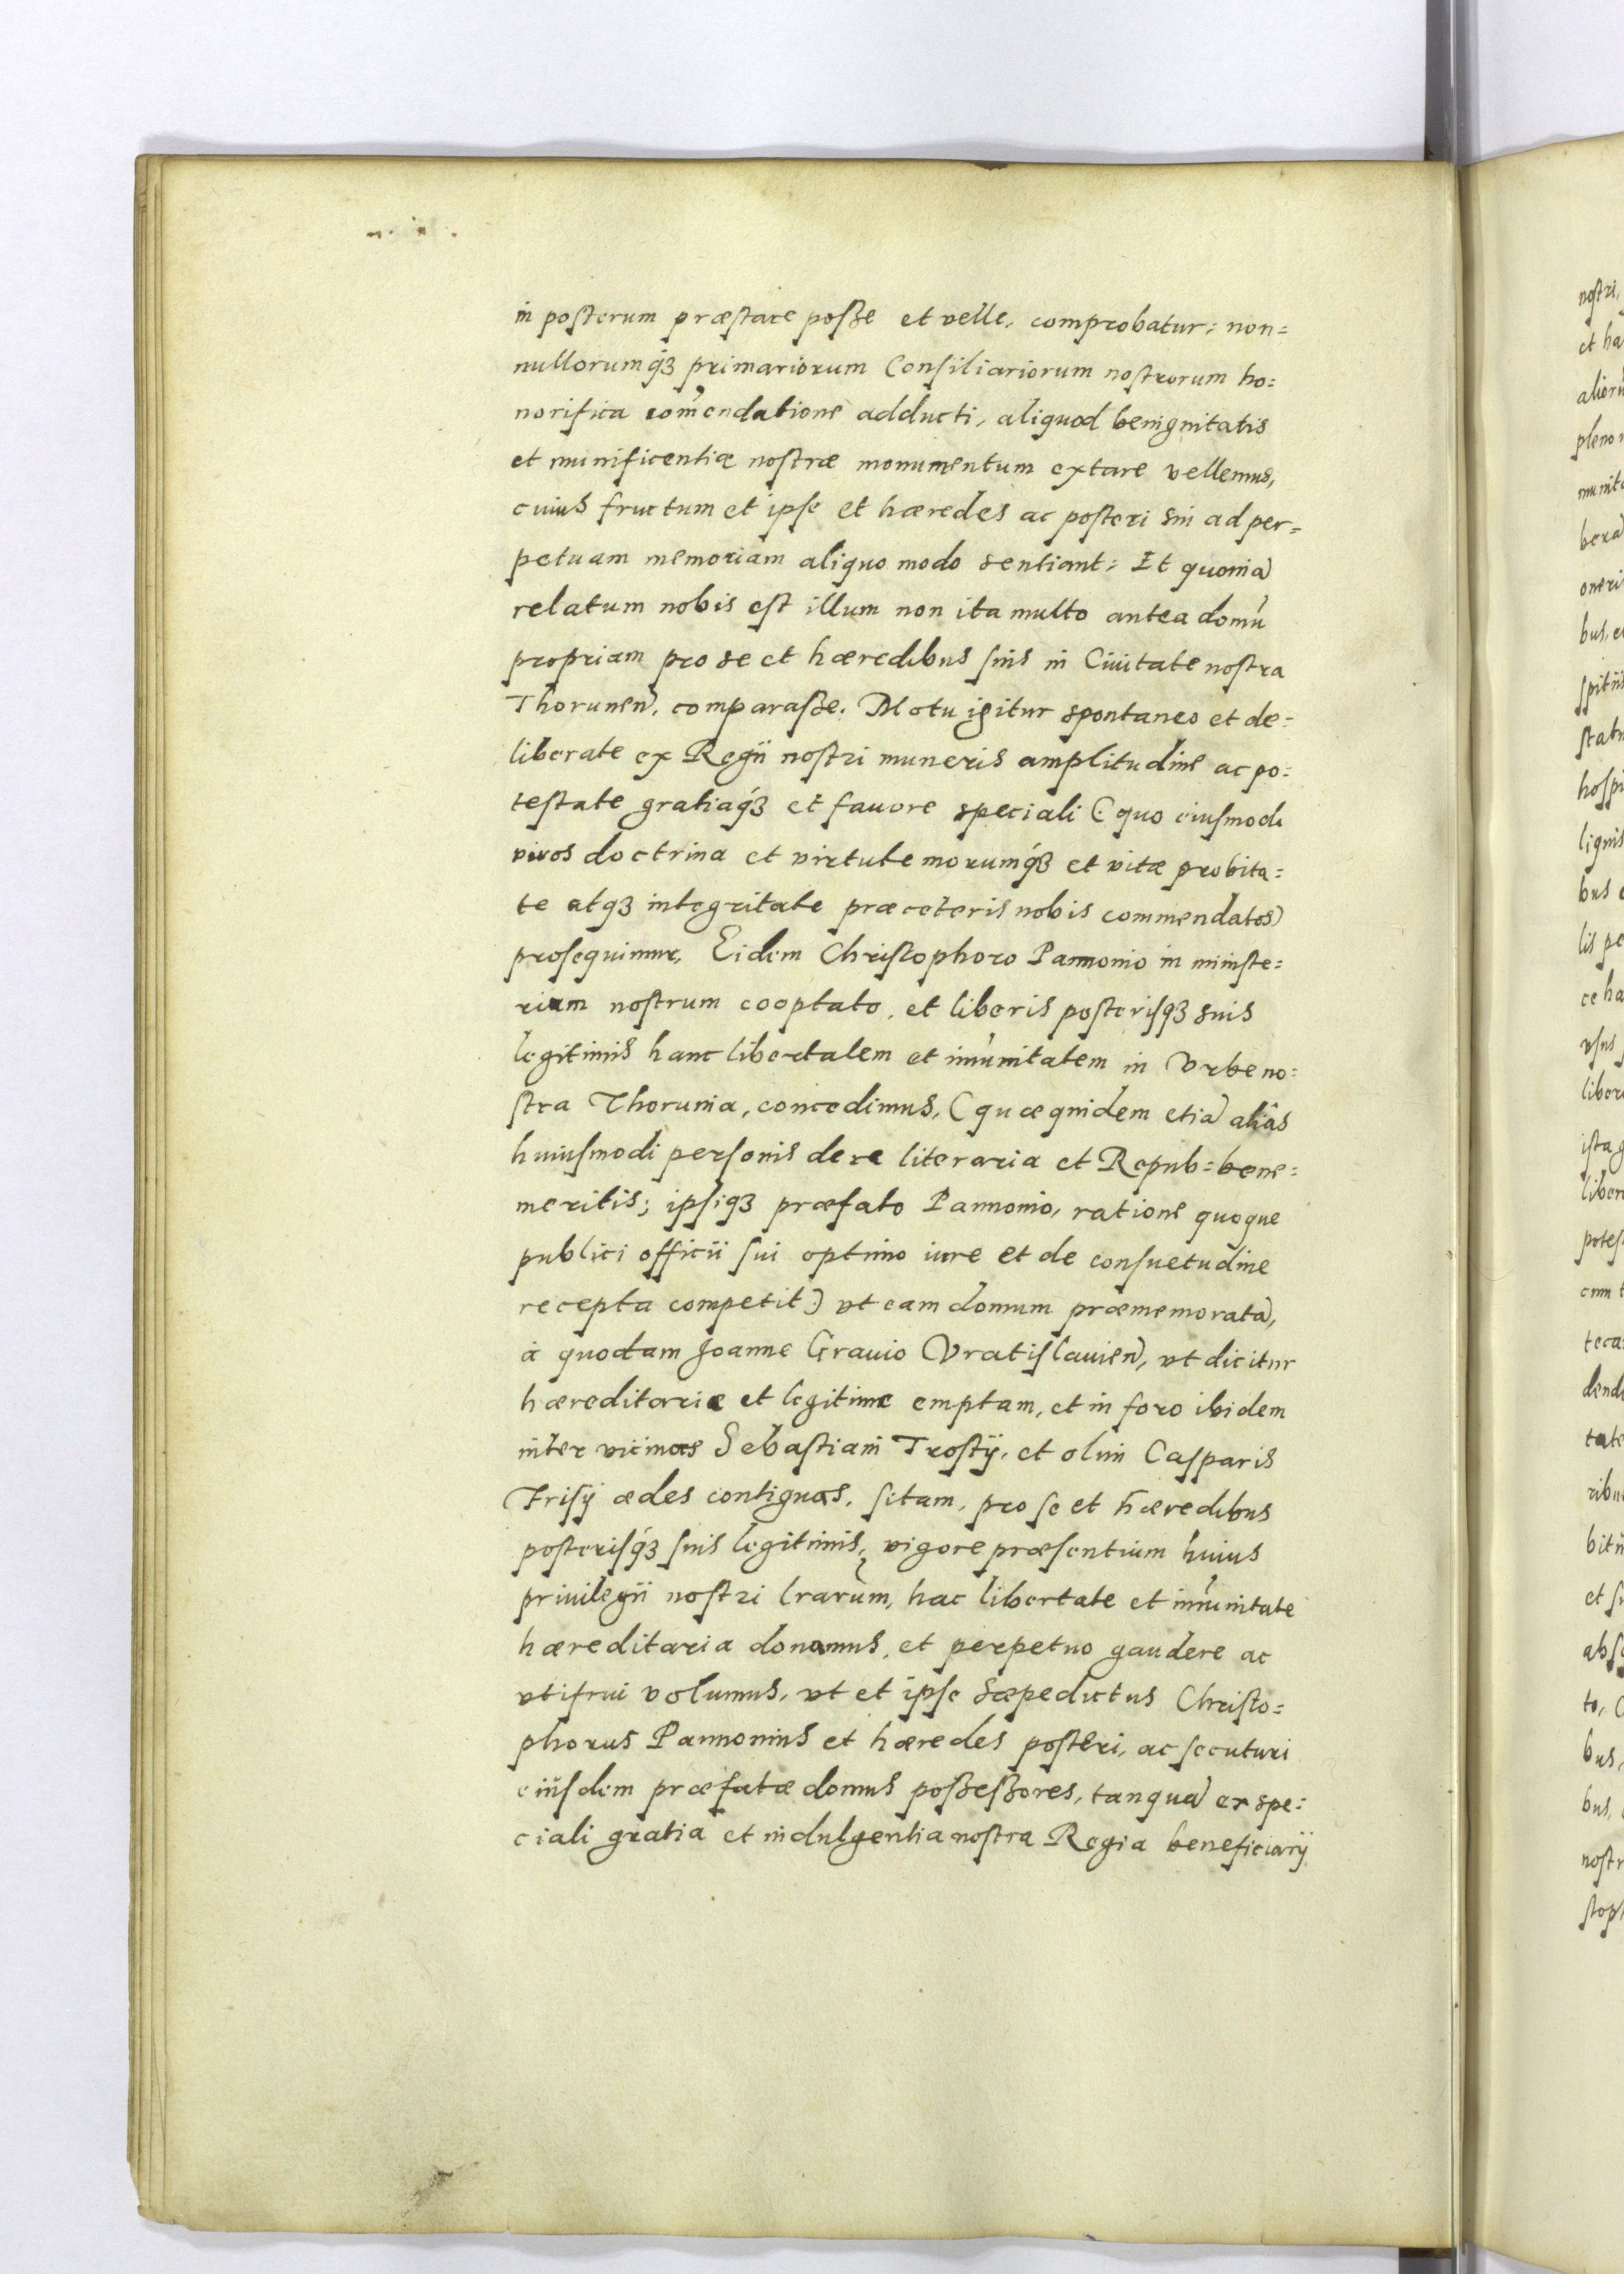 in posterum præstare posse et velle, comprobatur: non=
nullorumq́ꝫ primariorum Consiliariorum nostrorum ho=
norifica com̃endatione adducti, aliquod benignitatis
et munificentiæ nostræ monumentum extare vellemus,
cuius fructum et ipse et hæredes ac posteri sui ad per=
petuam memoriam aliquo modo sentiant: Et quoniã
relatum nobis est illum non ita multo antea domũ
propriam pro se et hæredibus suis in Ciuitate nostra
Thoruneñ. comparasse. Motu igitur spontaneo et de=
liberate ex Regij nostri muneris amplitudine ac po=
testate gratiaq́ꝫ et fauore speciali (: quo eiusmodi
viros doctrina et virtute morumq́ꝫ et vitæ probita=
te atqꝫ integritate præ ceteris nobis commendatos)
prosequimur, Eidem Christophoro Pannonio in ministe=
rium nostrum cooptato, et liberis posterisqꝫ suis
legitimis hanc libertatem et im̃unitatem in Vrbe no=
stra Thorunia, concedimus, (quæ quidem etiã aliâs
huiusmodi personis de re literaria et Repub= bene=
meritis; ipsiqꝫ præfato Pannonio, ratione quoque
publici officii sui optimo iure et de consuetudine
recepta competit:) vt eam domum præmemoratã,
à quodam Joanne Grauio Vratislauieñ, vt dicitur
hæreditarie et legitime emptam, et in foro ibidem
inter vicinas Sebastiani Trostij, et olim Casparis
Frisij ædes contiguas, sitam, pro se et hæredibus
posterisq́ꝫ suis legitimis, vigore præsentium huius
priuilegii nostri lrarum, hac libertate et im̃unitate
hæreditaria donamus, et perpetuo gaudere ac
vtifrui volumus, vt et ipse sæpedictus Christo=
phorus Pannonius et hæredes posteri, ac secuturi
eiusdem præfatæ domus possessores, tanquã ex spe=
ciali gratia et indulgentia nostra Regia beneficiarij
nostri,
et ha
aliorũ
pleno
munita
oneri
bus, e
spitiis
statu
hospi
lignis
bus
lis pe
ce ha
vsus
liber
ista
liber
potes
cum
teca
tate
et
to,
bus,
bus,
nostr
stop